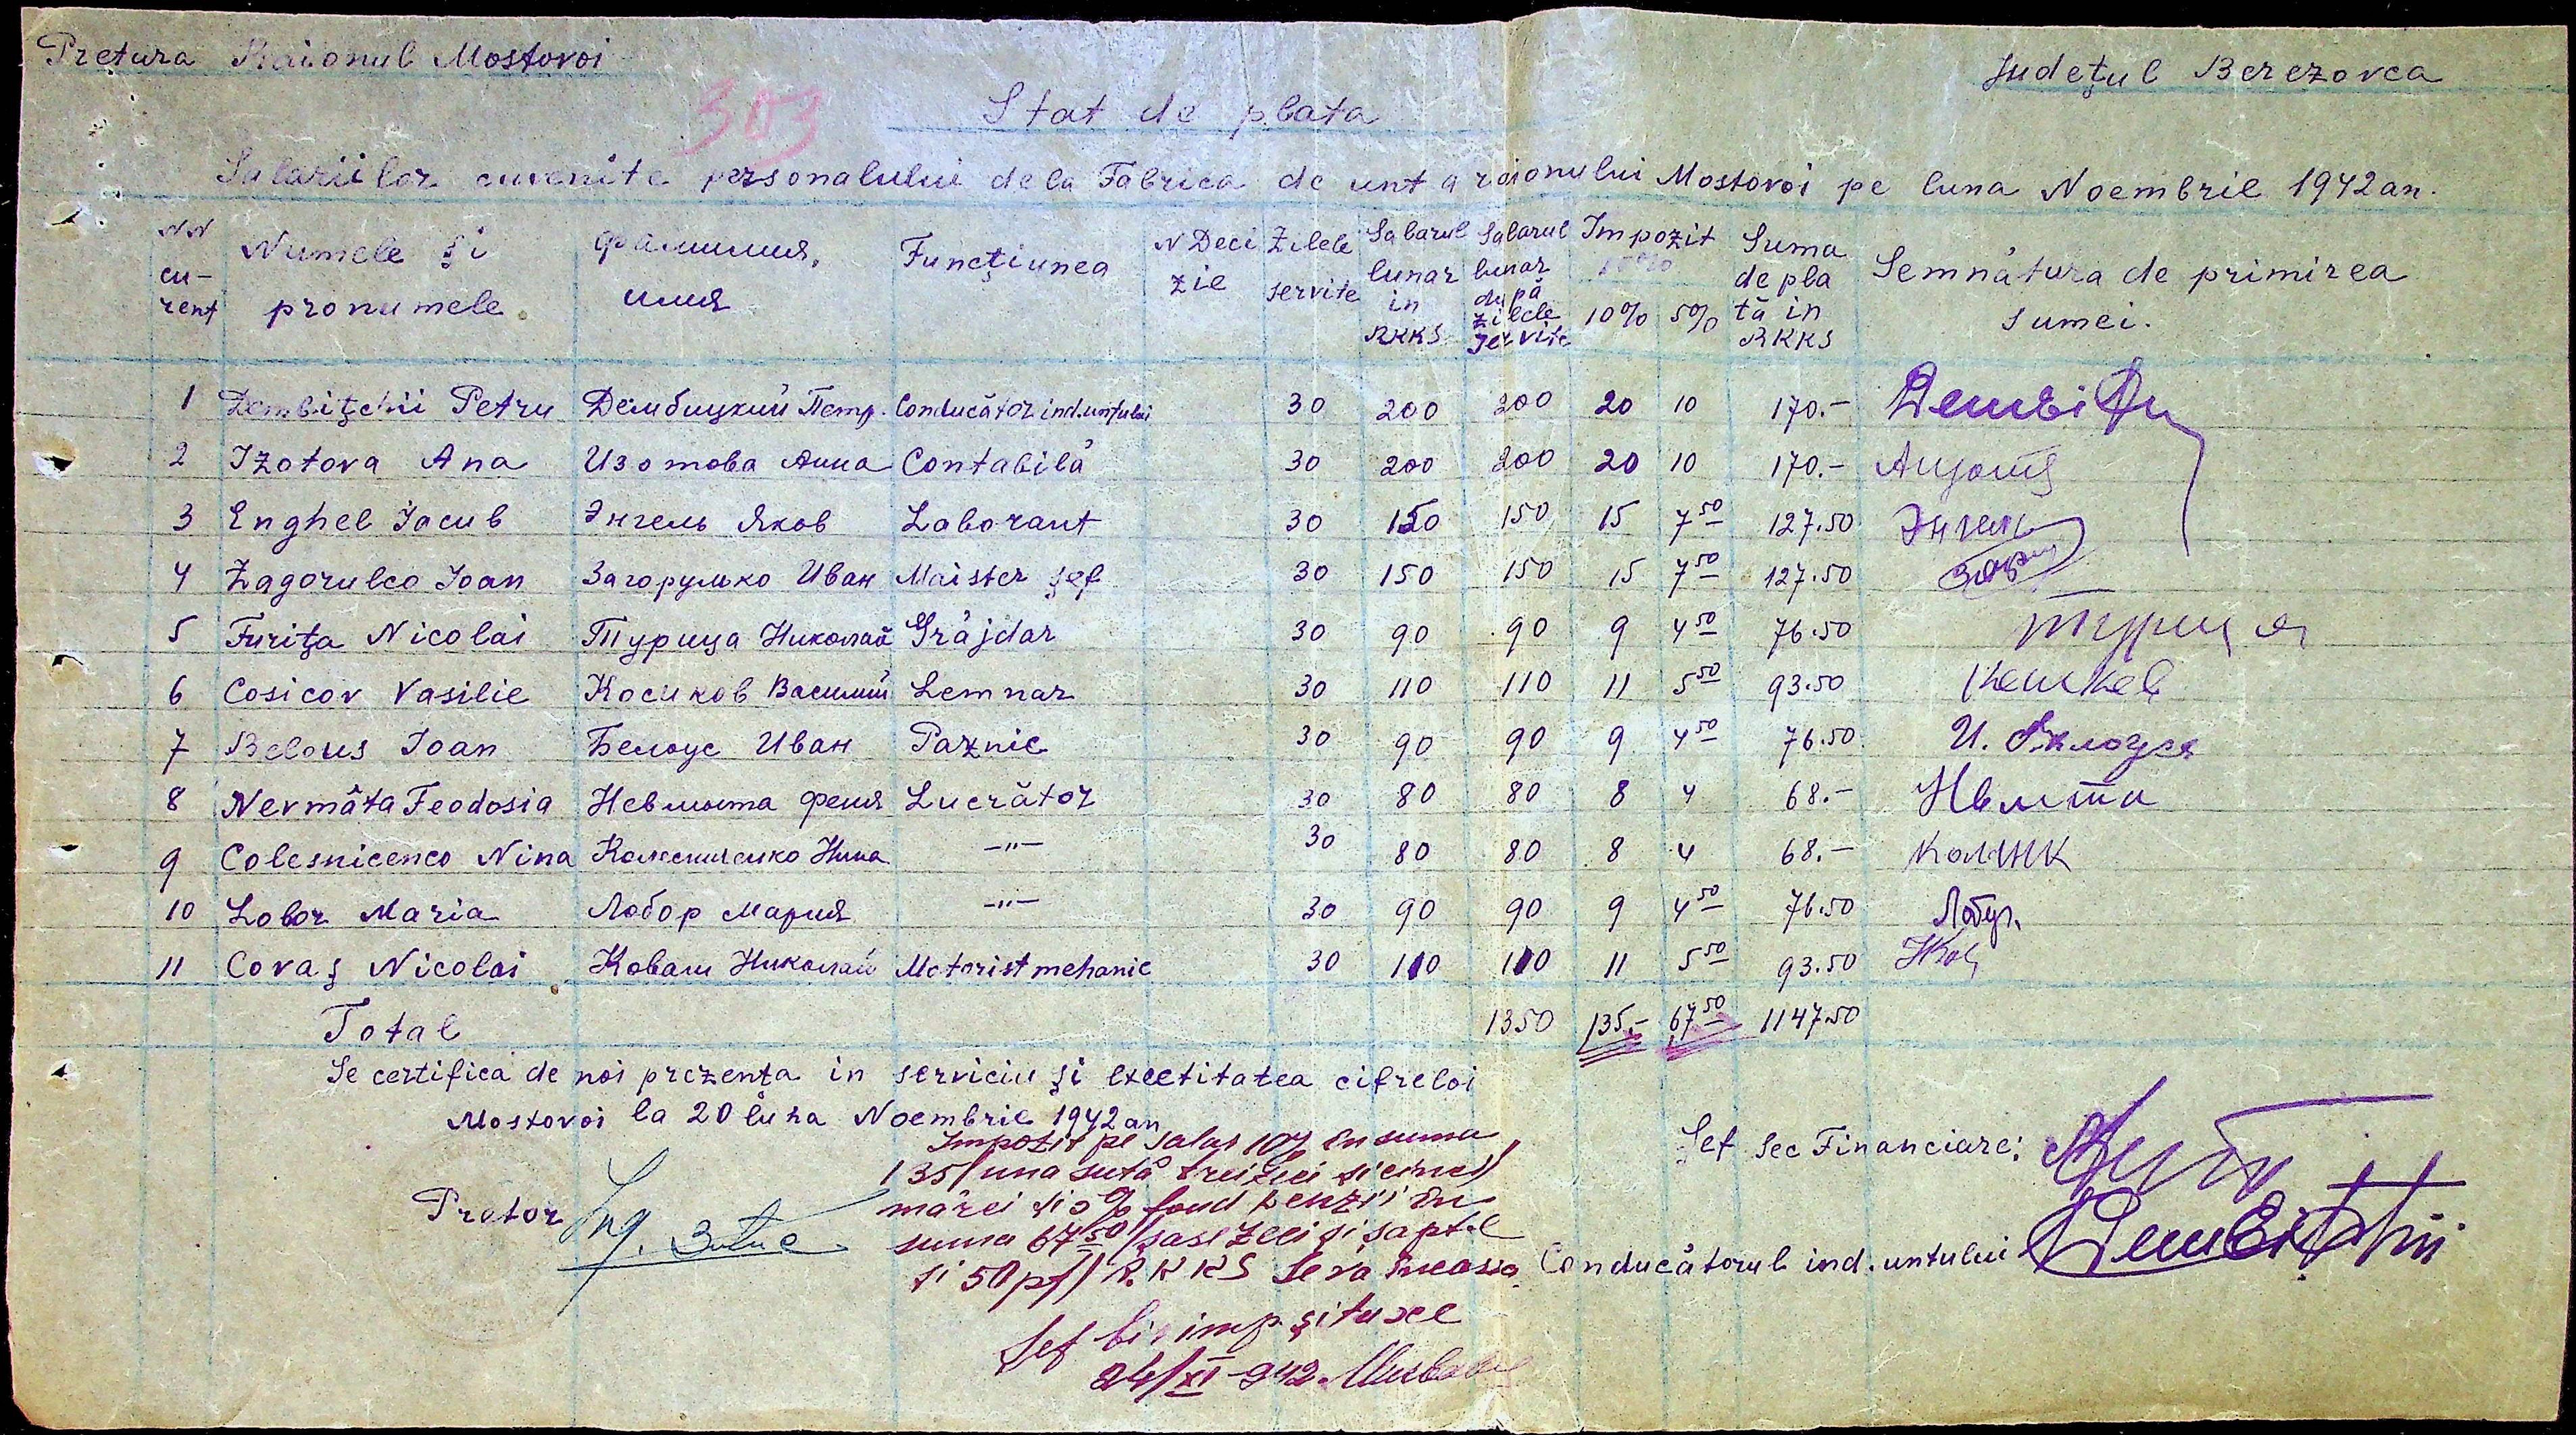 Pretura Raionul Mostovoi
Județul Berezovca
303
Stat de plata
Salariilor cuvenite personalului dela Fabrica de unt a raionului Mostovoi pe luna Noembrie 1942 an.
NN cu-rent Numele și pronumele. Фамилия, имя Funcțiunea N Deci zie Zilele servite Salarul lunar in RKKS Salarul lunar după zilele servite Impozit 10% 5% Suma de pla tă in RKKS Semnătura de primirea sumei.
1 Dembițchii Petru Дембицкий Петр. Conducător ind. untului 30 200 200 20 10 170.-
2 Izotova Ana Изотова Анна Contabilă 30 200 200 20 10 170.-
3 Enghel Iacub Энгель Яков Laborant 30 150 150 15 7 50 127.50 Энгель
4 Zagorulco Ioan Загорулько Иван Maister șef 30 150 150 15 7 50 127.50
5 Turița Nicolai Турица Николай Grăjdar 30 90 90 9 4 50 76.50 Турица
6 Cosicov Vasilie Косиков Василий Lemnar 30 110 110 11 5 50 93.50
7 Belous Ioan Белоус Иван Paznic 30 90 90 9 4 50 76.50 И. Белоус
8 Nevmâta Feodosia Невмыта Феня Lucrător 30 80 80 8 4 68.-
9 Colesnicenco Nina Колесниченко Нина -"- 30 80 80 8 4 68.-
10 Lobor Maria Лобор Мария -"- 30 90 90 9 4 50 76.50
11 Covaș Nicolai Коваш Николай Motorist mehanic 30 110 110 11 5 50 93.50
Total 1350 135.- 67 50 1147.50
Se certifică de noi prezența in serviciu și exectitatea cifreloi
Mostovoi la 20 luna Noembrie 1942 an
Impozit pe salar 10% în suma
135 (una sută treizeci și cinci)
mărci și 5% fond penzii în
suma 67 50 (șase zeci și șapte
și 50 pf) RKKS se va încassa
Șef bir imp. și taxe
24/XI-942.
Șef Sec Financiare:
Pretor Ing.
Conducătorul ind. untului